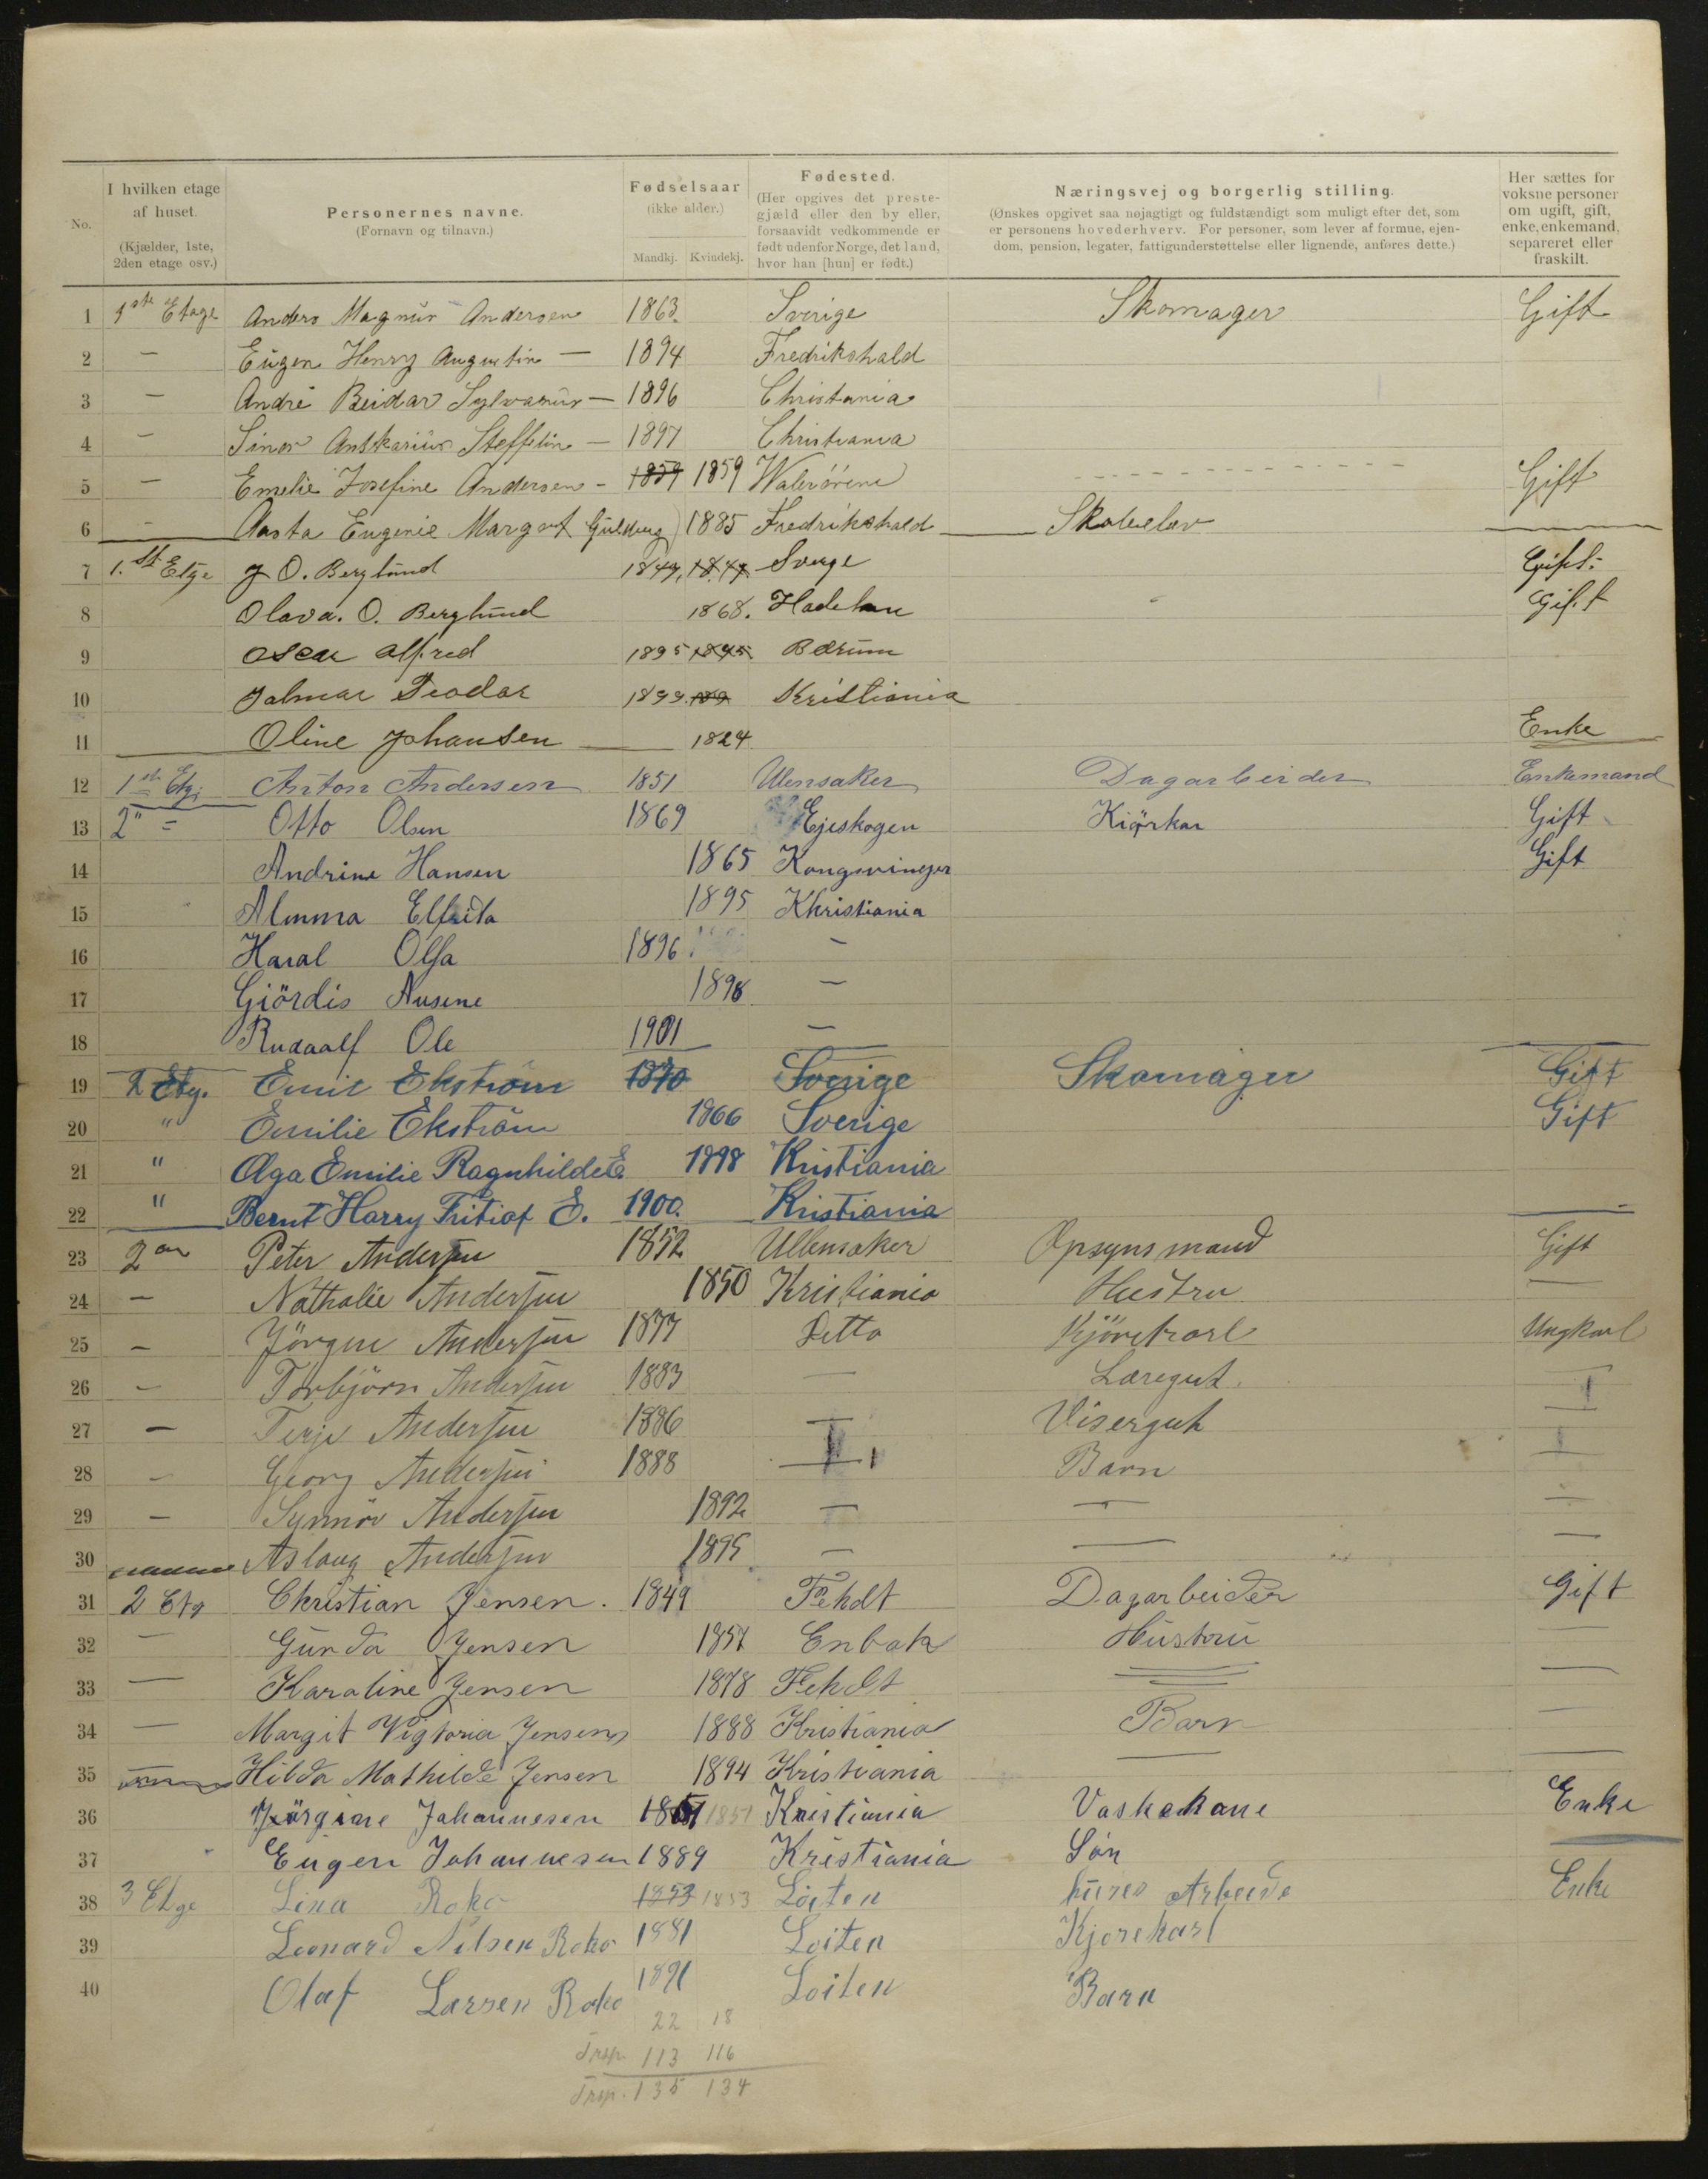 No.
I hvilken etage af huset. (Kjælder, 1ste, 2den etage osv.)
Personernes navne. (Fornavn og tilnavn.)
Fødselsaar (ikke alder.) Mandkj. Kvindekj.
Fødested. (Her opgives det prestegjæld eller den by eller, forsaavidt vedkommende er født udenfor Norge, det land, hvor han [hun] er født.)
Næringsvej og borgerlig stilling. (Ønskes opgivet saa nøjagtigt og fuldstændigt som muligt efter det, som er personens hovederhverv. For personer, som lever af formue, ejendom, pension, legater, fattigunderstøttelse eller lignende, anføres dette.)
Her sættes for voksne personer om ugift, gift, enke, enkemand, separeret eller fraskilt.
1 1ste Etage Anders Magnus Andersen 1863 Sverige Skomager Gift
2 — Eugen Henry Augustin — 1894 Fredrikshald
3 — André Reidar Sylvanus — 1896 Christania
4 — Antskarius Steffelin — 1897 Christiania
5 — Emelie Josefine Andersen - 1859 1859 Gift
6 - Aasta Eugenie Margot Guldberg 1885 Fredrikshald Skoleelev
7 1.ste Etge J O. Berglund 1847, 1847 Sverge Gift.
8 Olava. O. Berglund 1868. Gift
9 Oscar Alfred 1895 1895 Bærum
10 Jalmar Teodor 1899 Kristiania
11 Oline Johansen 1824 Enke
12 1ste Etg: Anton Andersen 1851 Ulensaker Dagarbeider Enkemand
13 2" = Otto Olsen 1869 Ejeskogen Kiørkar Gift
14 Andrine Hansen 1865 Kongsvinger Gift
15 Almma Elfrida 1895 Khristiania
16 Haral Olfa 1896 —
17 Giördis Ausene 1898 —
18 Rudaalf Ole 1901 —
19 2 Etg. Emil Ekström 1870 Sverige Skomager Gift
20 " Emilie Ekström 1866 Sverige Gift
21 " Olga Emilie Ragnhilde E. 1898 Kristiania
22 " Bernt Harry Fritiof E. 1900. Kristiania
23 2en Peter Andersen 1852 Ullensaker Opsynsmand Gift
24 — Nathalie Andersen 1850 Kristiania Hustru —
25 — Jörgen Andersen 1877 Detto Kjörekarl Ungkarl
26 — Torbjörn Andersen 1883 — Læregut. —
27 — Terje Andersen 1886 — Visergut —
28 — Georg Andersen 1888 — Barn —
29 — Synnöv Andersen 1892 — — —
30 Aslaug Andersen 1895 — — —
31 2 Etg Christian Jensen. 1849 Fehdt Dagarbeider Gift
32 — Gunda Jensen 1857 Enbak Hustru —
33 — Karoline Jensen 1878 Fehdt —
34 — Margit Vigtoria Jensen 1888 Kristiania Barn —
35 Hilda Mathilde Jensen 1894 Kristiania — —
36 Jörgine Johannesen 1851 1851 Kristiania Vaskekone Enke
37 Eugen Johannesen 1889 Kristiania Sön
38 3 Etge Lina Roko 1853 1853 Löiten Arbeide Enke
39 Leonard Nilsen Roko 1881 Loiten Kjorekarl
40 Olaf Larsen Roko 1891 Loiten Barn
22 18
Trsp. 113 116
Trsp. 135 134